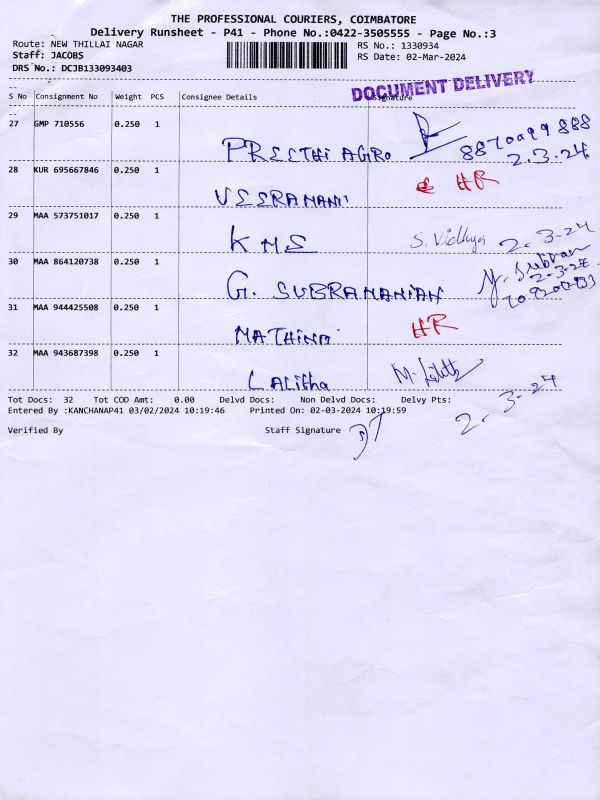 THE PROFESSIONAL COURIERS, COIMBATORE
Delivery Runsheet - P41 - Phone No.:0422-3505555 - Page No.:3
Route: NEW THILLAI NAGAR RS No.: 1330934
Staff: JACOBS RS Date: 02-Mar-2024
DRS No.: DCJB133093403
DOCUMENT DELIVERY
S No Consignment No Weight PCS Consignee Details Signature
27 GMP 710556 0.250 1
PREETHI AGRO 8870a99888
2.3.24
28 KUR 695667846 0.250 1
VEERAMANI HR
29 MAA 573751017 0.250 1
KMS S. Vidhya 2.3-24
30 MAA 864120738 0.250 1
G. SUBRAMANIAN 2-3-24
31 MAA 944425508 0.250 1
MATHINA HR
32 MAA 943687398 0.250 1
Lalitha
Tot Docs: 32 Tot COD Amt: 0.00 Delvd Docs: Non Delvd Docs: Delvy Pts:
Entered By :KANCHANAP41 03/02/2024 10:19:46 Printed On: 02-03-2024 10:19:59
2.3-24
Verified By Staff Signature